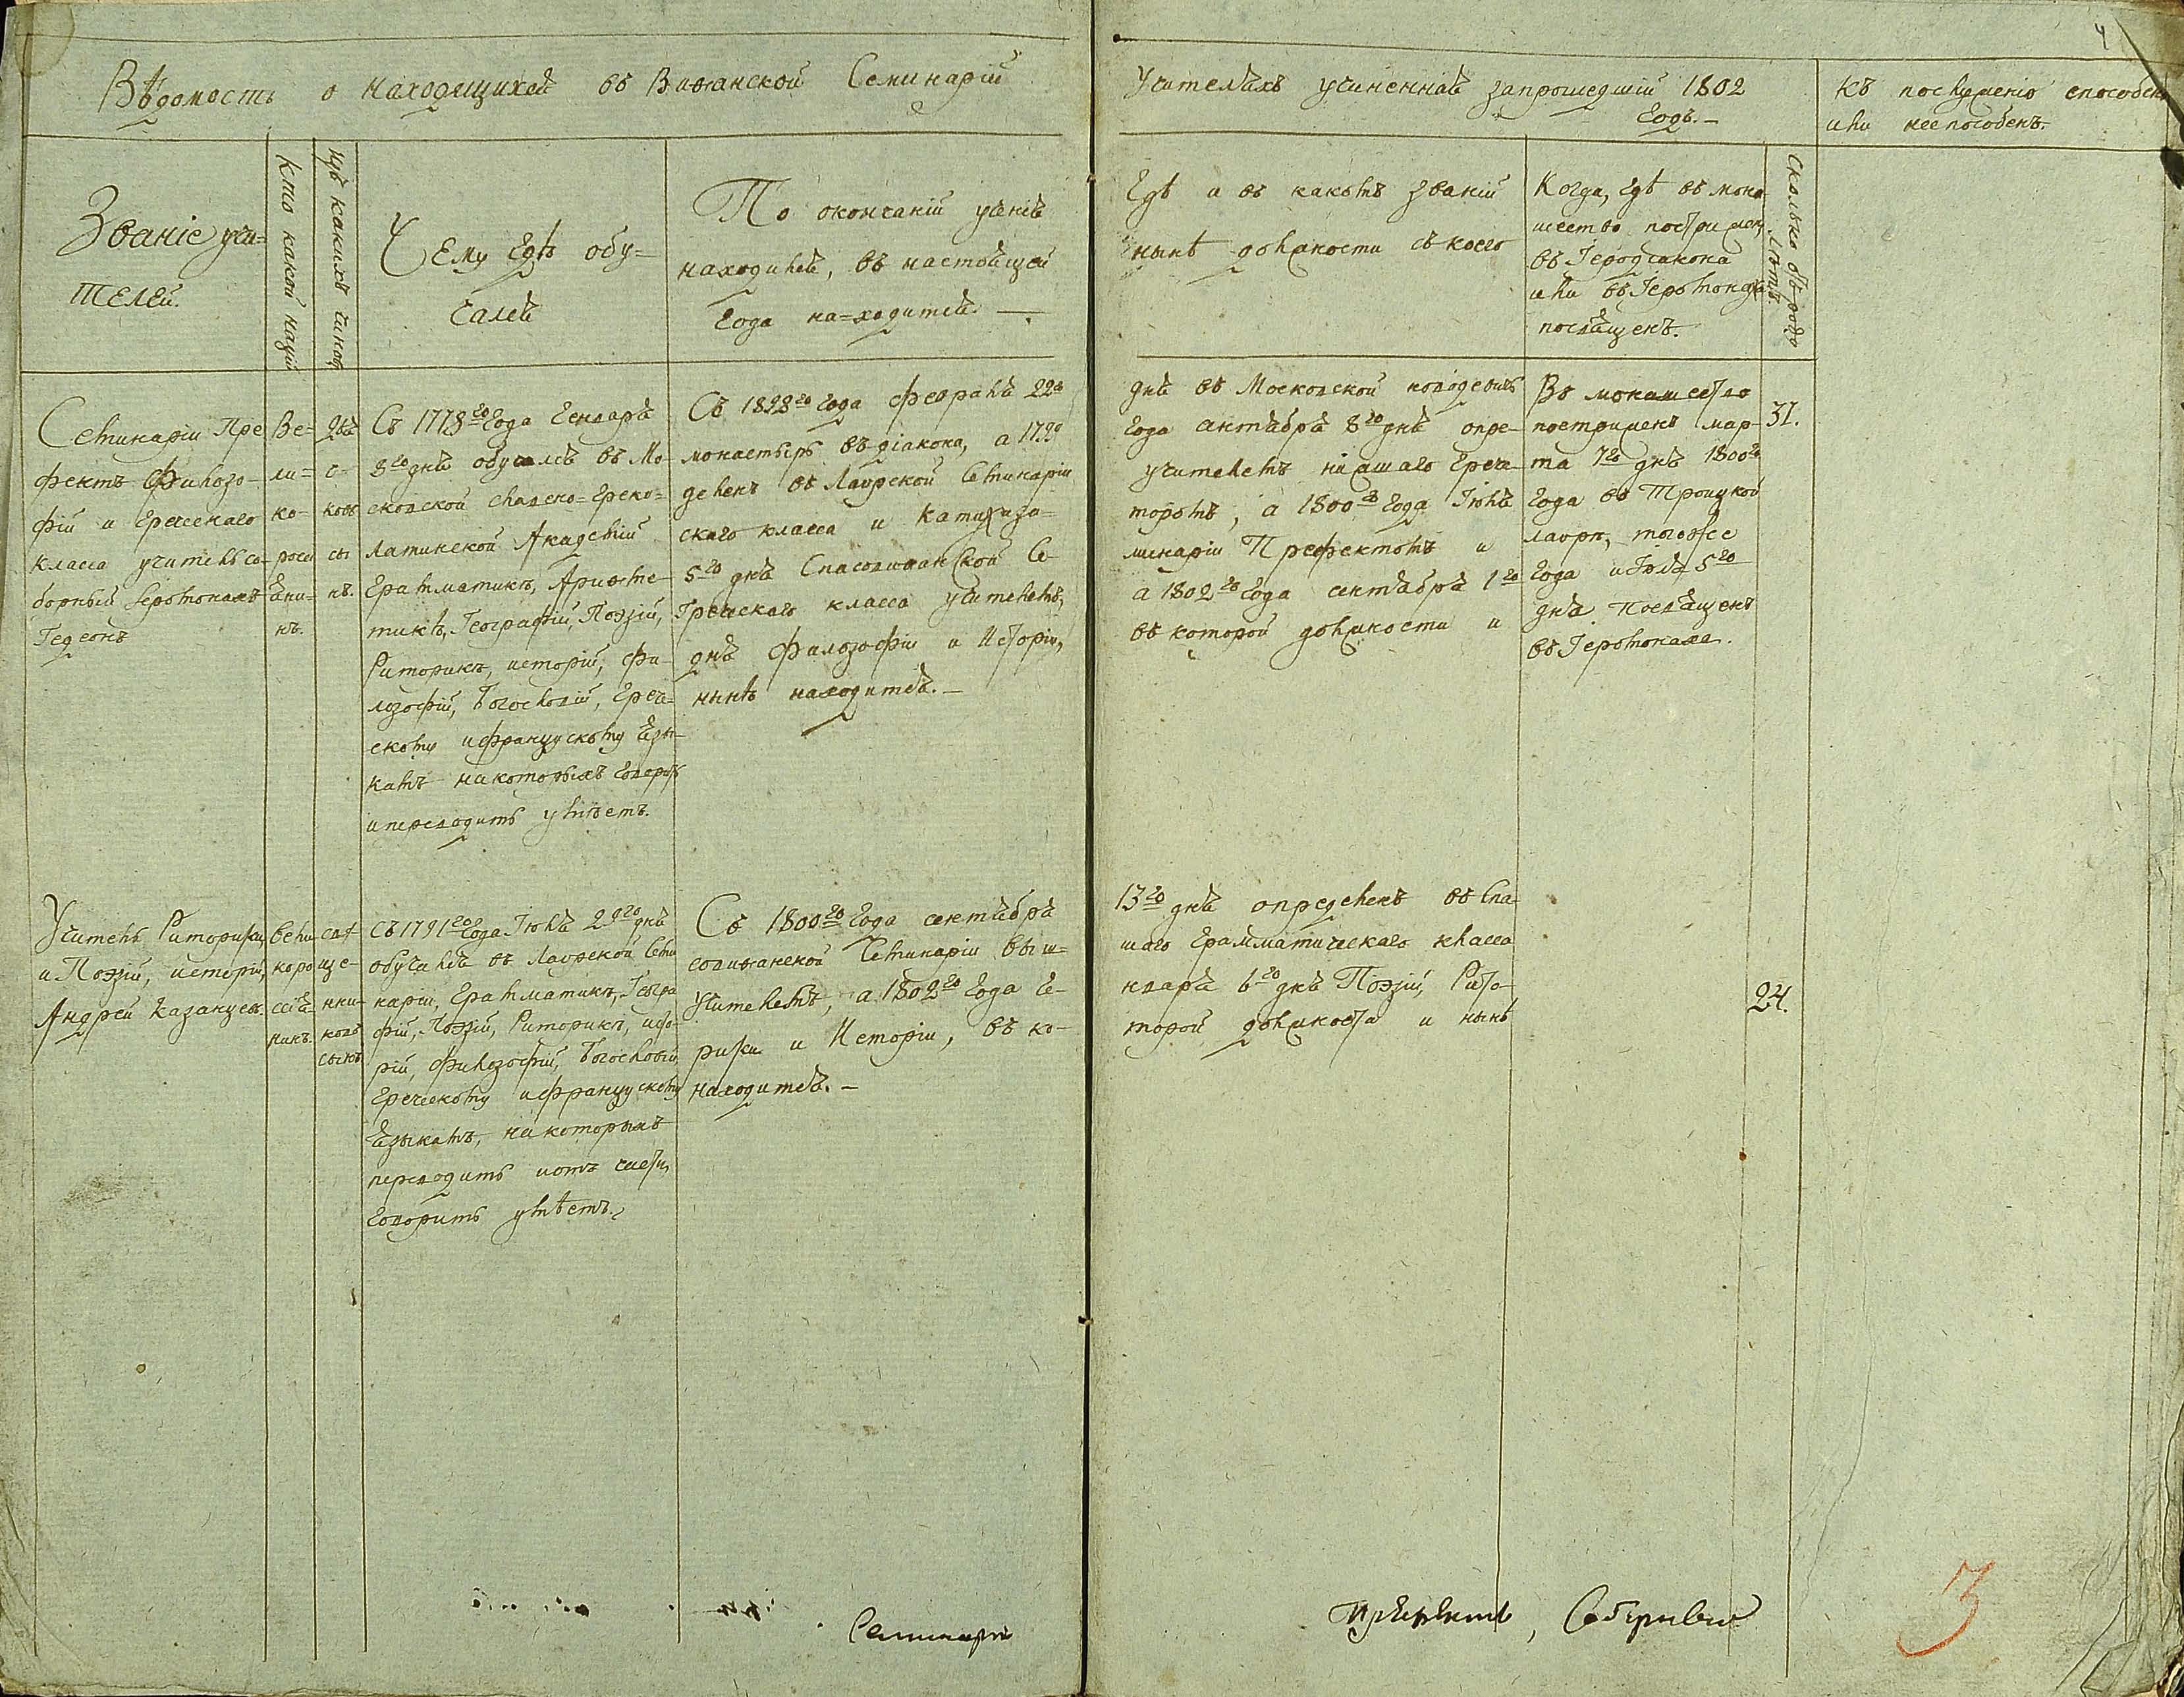 Вѣдомость о находящихся въ Виѳанской Семинаріи
Учителяхъ учиненная запрошедшій 1802
годъ.
4
къ посвященію способенъ
или неспособенъ.
Званіе учи=
телей.
кто какой націи
изъ какихъ чиновъ
Чему гдѣ обу=
чался
По окончаніи ученія
находился, въ настоящей
года на=ходится.
Гдѣ и въ какомъ званіи
нынѣ должности съ коего
Когда, гдѣ въ мона
шество постриженъ,
въ Іеродіакона
или въ Іеромонаха
посвященъ.
Сколько отъ роду
лѣтъ.
Семинаріи Пре
фектъ Филозо-
фіи и Греческаго
класса учитель со-
борный Іеромонахъ
Гедеонъ
Ве=
ли=
ко-
росія
яни=
нъ.
дья
с-
ковъ
сы
нъ.
Съ 1778го года Генваря
8го дня обучался въ Мо-
сковской славено=греко=
латинской Академіи
Грамматикѣ, Ариѳме-
тикѣ, Географіи, Поэзіи,
Риторикѣ, исторіи, фи-
лозофіи, Богословіи, Грече-
скому и французскому язы-
камъ на которыхъ говорить
и переводить умѣетъ.
Съ 1798го года Февраля 22го
монастырь въ діакона, а 1799
деленъ въ Лаврской Семинаріи
скаго класса и Катихизи=
5го дня Спасовиѳанской Се
Греческаго класса учителемъ,
дня Филозофіи и Исторіи,
нынѣ находится.
дня въ Московской новодевичь
года октября 8го дня опре-
учителемъ нисшаго Грече-
торомъ, а 1800го года Іюля
минаріи Префектомъ и
а 1802го года сентября 1го
въ которой должности и
Въ монашество
постриженъ мар-
та 7го дня 1800го
года въ Троицкой
лаврѣ, тогоже
года июля 5го
дня посвященъ
въ Іеромонаха.
31.
Учитель Риторики
и Поэзіи, исторіи,
Андрей Казанцевъ.
вели
коро
ссія
нинъ.
свя
ще-
нни-
ковъ
сынъ
съ 1791го года Іюля 29го дня
обучался въ Лаврской Семи
наріи, Грамматикѣ, Геогра
фіи, Поэзіи, Риторикѣ, исто-
ріи, Филозофіи, Богословіи,
Греческому и французскому
языкамъ, на которыхъ
переводить и отъ части
говорить умѣетъ.
Съ 1800го года сентября
совиѳанской Семинаріи выш=
учителемъ, а 1802го года Ге-
рики и Исторіи, въ ко-
находится.
13го дня опредѣленъ въ Спа-
шаго Грамматическаго класса
нваря 6го дня Поэзіи, Рито-
торой должности и нынѣ
24.
Семинаріи
Префектъ, Соборный
3